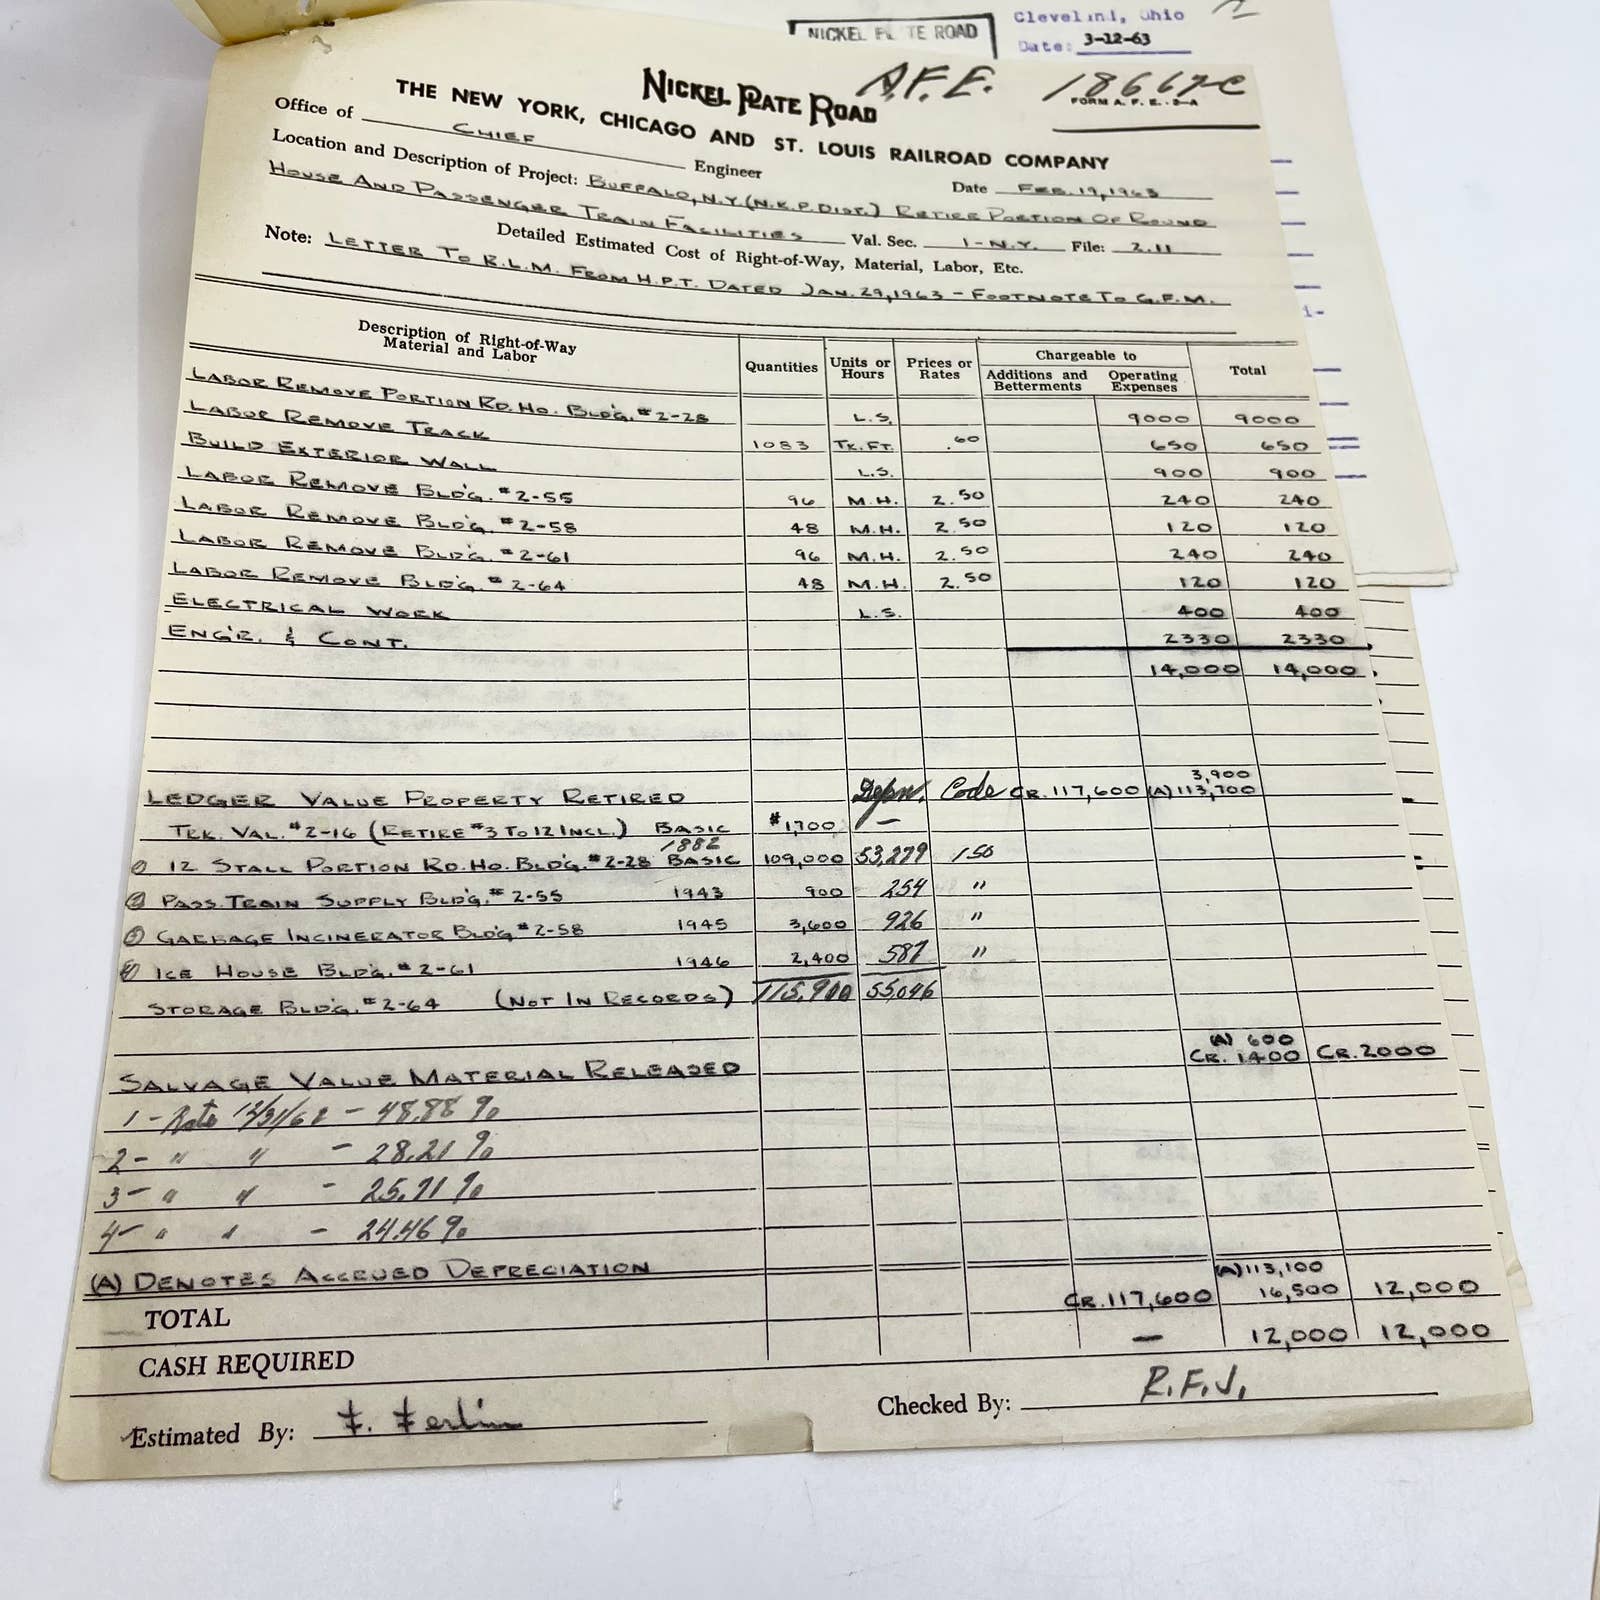 NICKEL PLATE ROAD
Cleveland, Ohio
Date: 3-12-63
NICKEL PLATE ROAD
A.F.E. 18667-C
FORM A. F. E. - 3-A
THE NEW YORK, CHICAGO AND ST. LOUIS RAILROAD COMPANY
Office of CHIEF Engineer
Date FEB. 19, 1963
Location and Description of Project: BUFFALO, N.Y. (N.K.P. DIST.) RETIRE PORTION OF ROUND
HOUSE AND PASSENGER TRAIN FACILITIES Val. Sec. 1-N.Y. File: 2.11
Detailed Estimated Cost of Right-of-Way, Material, Labor, Etc.
Note: LETTER TO R.L.M. FROM H.P.T. DATED JAN. 29, 1963 - FOOTNOTE TO G.F.M.
Description of Right-of-Way Material and Labor Quantities Units or Hours Prices or Rates Chargeable to Additions and Betterments Operating Expenses Total
LABOR REMOVE PORTION RD. HO. BLD'G. #2-28 L.S. 9000 9000
LABOR REMOVE TRACK 1083 TK. FT. .60 650 650
BUILD EXTERIOR WALL L.S. 900 900
LABOR REMOVE BLD'G. #2-55 96 M.H. 2.50 240 240
LABOR REMOVE BLD'G. #2-58 48 M.H. 2.50 120 120
LABOR REMOVE BLD'G. #2-61 96 M.H. 2.50 240 240
LABOR REMOVE BLD'G. #2-64 48 M.H. 2.50 120 120
ELECTRICAL WORK L.S. 400 400
ENG'R. & CONT. 2330 2330
14,000 14,000
3,900
LEDGER VALUE PROPERTY RETIRED Depn. Code CR. 117,600 (A) 113,700
TRK. VAL. #2-16 (RETIRE #3 TO 12 INCL.) BASIC $1,700 —
1882
1 12 STALL PORTION RD. HO. BLD'G. #2-28 BASIC 109,000 53,279 150
2 PASS. TRAIN SUPPLY BLD'G. #2-55 1943 900 254 "
3 GARBAGE INCINERATOR BLD'G #2-58 1945 3,600 926 "
4 ICE HOUSE BLD'G. #2-61 1946 2,400 587 "
STORAGE BLD'G. #2-64 (NOT IN RECORDS) 115,900 55,046
(A) 600
SALVAGE VALUE MATERIAL RELEASED CR. 1400 CR. 2000
1 - Rate 12/31/62 - 48.88 %
2 - " " - 28.21 %
3 - " " - 25.71 %
4 - " " - 24.46 %
(A) DENOTES ACCRUED DEPRECIATION (A) 113,100
TOTAL CR. 117,600 16,500 12,000
CASH REQUIRED — 12,000 12,000
Estimated By: F. Ferlin Checked By: R.F.J.